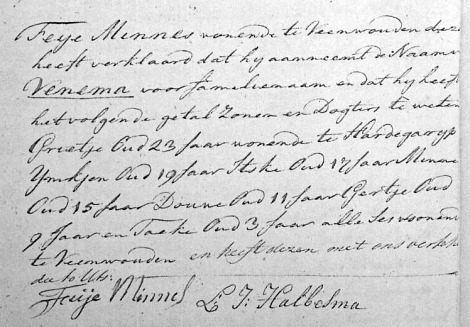 Feije Minnes wonende te Veenwouden deze
heeft verklaard dat hy aanneemt de Naam v
Venema voor familienaam en dat hy heeft
het volgende getal Zonen en Dogters te weten
Grietje Oud 23 Jaar wonende te Hardegaryp
Ymkjen Oud 19 Jaar Itske Oud 17 Jaar Minne
Oud 15 Jaar Douwe Oud 11 Jaar Gertje Oud
9 Jaar en Taeke Oud 3 Jaar alle Ses wonend
te Veenwouden en heeft dezen met ons
Feije Minnes L J: Halbesma